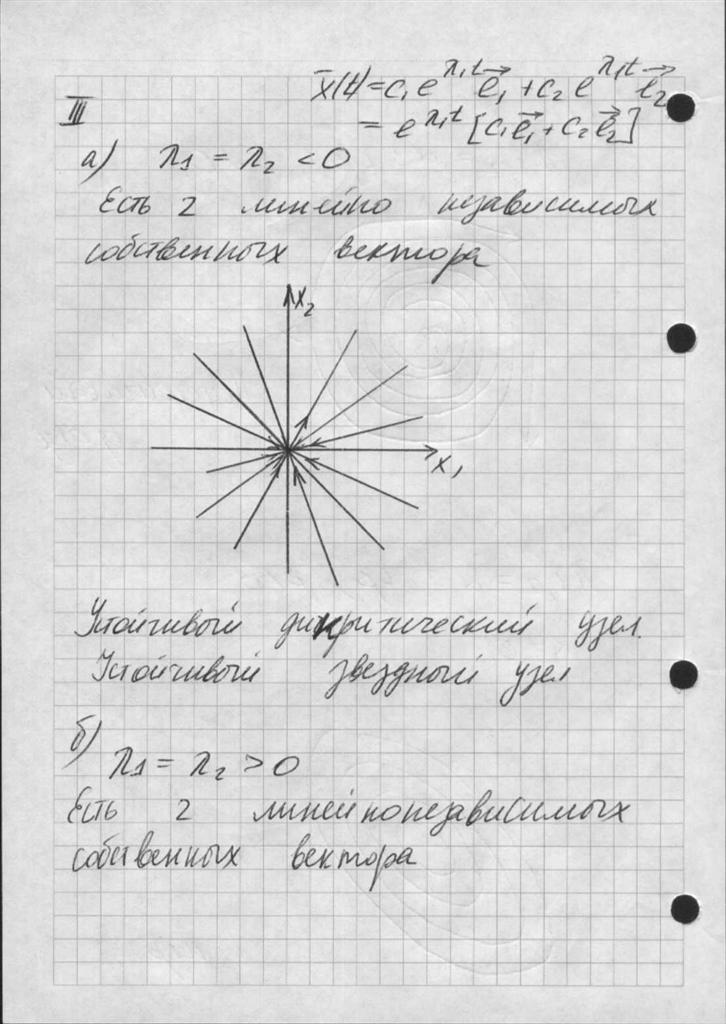 x̄(t) = c₁ e^{λ₁t} e⃗₁ + c₂ e^{λ₁t} e⃗₂
III
= e^{λ₁t} [c₁e⃗₁ + c₂e⃗₂]
а) λ₁ = λ₂ < 0
Есть 2 линейно независимых
собственных вектора
x₂
x₁
Устойчивый дикритический узел.
Устойчивый звездный узел
б)
λ₁ = λ₂ > 0
Есть 2 линейнонезависимых
собственных вектора